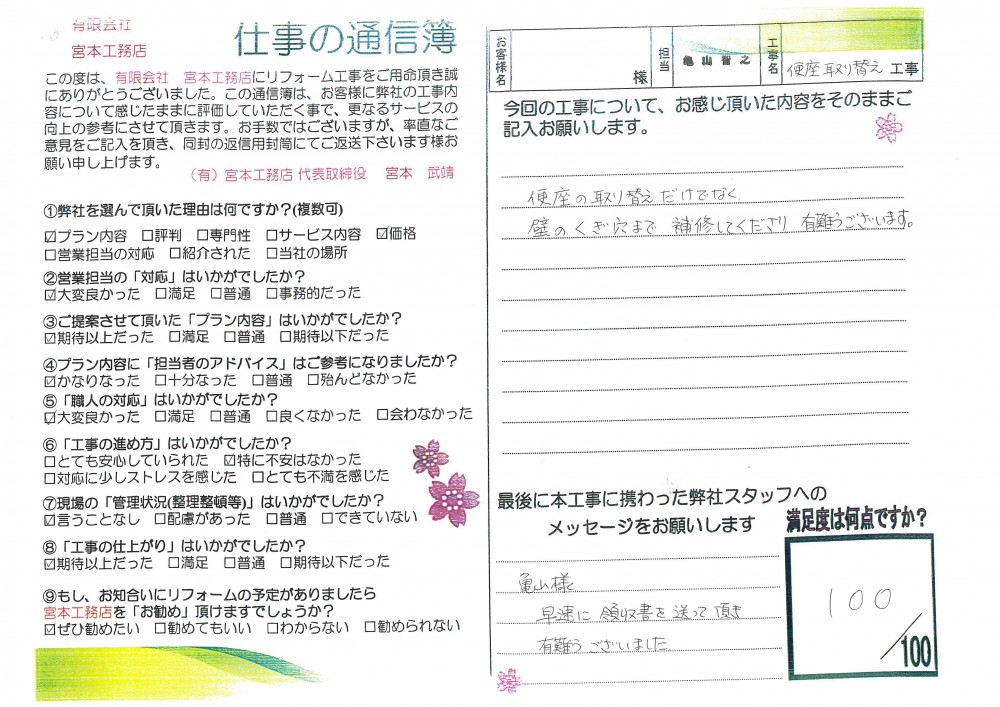 有限会社
宮本工務店
仕事の通信簿
この度は、有限会社　宮本工務店にリフォーム工事をご用命頂き誠
にありがとうございました。この通信簿は、お客様に弊社の工事内
容について感じたままに評価していただく事で、更なるサービスの
向上の参考にさせて頂きます。お手数ではございますが、率直なご
意見をご記入を頂き、同封の返信用封筒にてご返送下さいます様お
願い申し上げます。
（有）宮本工務店 代表取締役　宮本　武靖
①弊社を選んで頂いた理由は何ですか？(複数可)
☑プラン内容　□評判　□専門性　□サービス内容　☑価格
□営業担当の対応　□紹介された　□当社の場所
②営業担当の「対応」はいかがでしたか？
☑大変良かった　□満足　□普通　□事務的だった
③ご提案させて頂いた「プラン内容」はいかがでしたか？
☑期待以上だった　□満足　□普通　□期待以下だった
④プラン内容に「担当者のアドバイス」はご参考になりましたか？
☑かなりなった　□十分なった　□普通　□殆んどなかった
⑤「職人の対応」はいかがでしたか？
☑大変良かった　□満足　□普通　□良くなかった　□会わなかった
⑥「工事の進め方」はいかがでしたか？
□とても安心していられた　☑特に不安はなかった
□対応に少しストレスを感じた　□とても不満を感じた
⑦現場の「管理状況(整理整頓等)」はいかがでしたか？
☑言うことなし　□配慮があった　□普通　□できていない
⑧「工事の仕上がり」はいかがでしたか？
☑期待以上だった　□満足　□普通　□期待以下だった
⑨もし、お知合いにリフォームの予定がありましたら
宮本工務店を「お勧め」頂けますでしょうか？
☑ぜひ勧めたい　□勧めてもいい　□わからない　□勧められない
お客様名　様　担当　亀山智之　工事名　便座取り替え 工事
今回の工事について、お感じ頂いた内容をそのままご
記入お願いします。
便座の取り替えだけでなく
壁のくぎ穴まで 補修してくださり 有難うございます。
最後に本工事に携わった弊社スタッフへの
メッセージをお願いします
亀山様
早速に 領収書を送って頂き
有難うございました
満足度は何点ですか？
100
／100